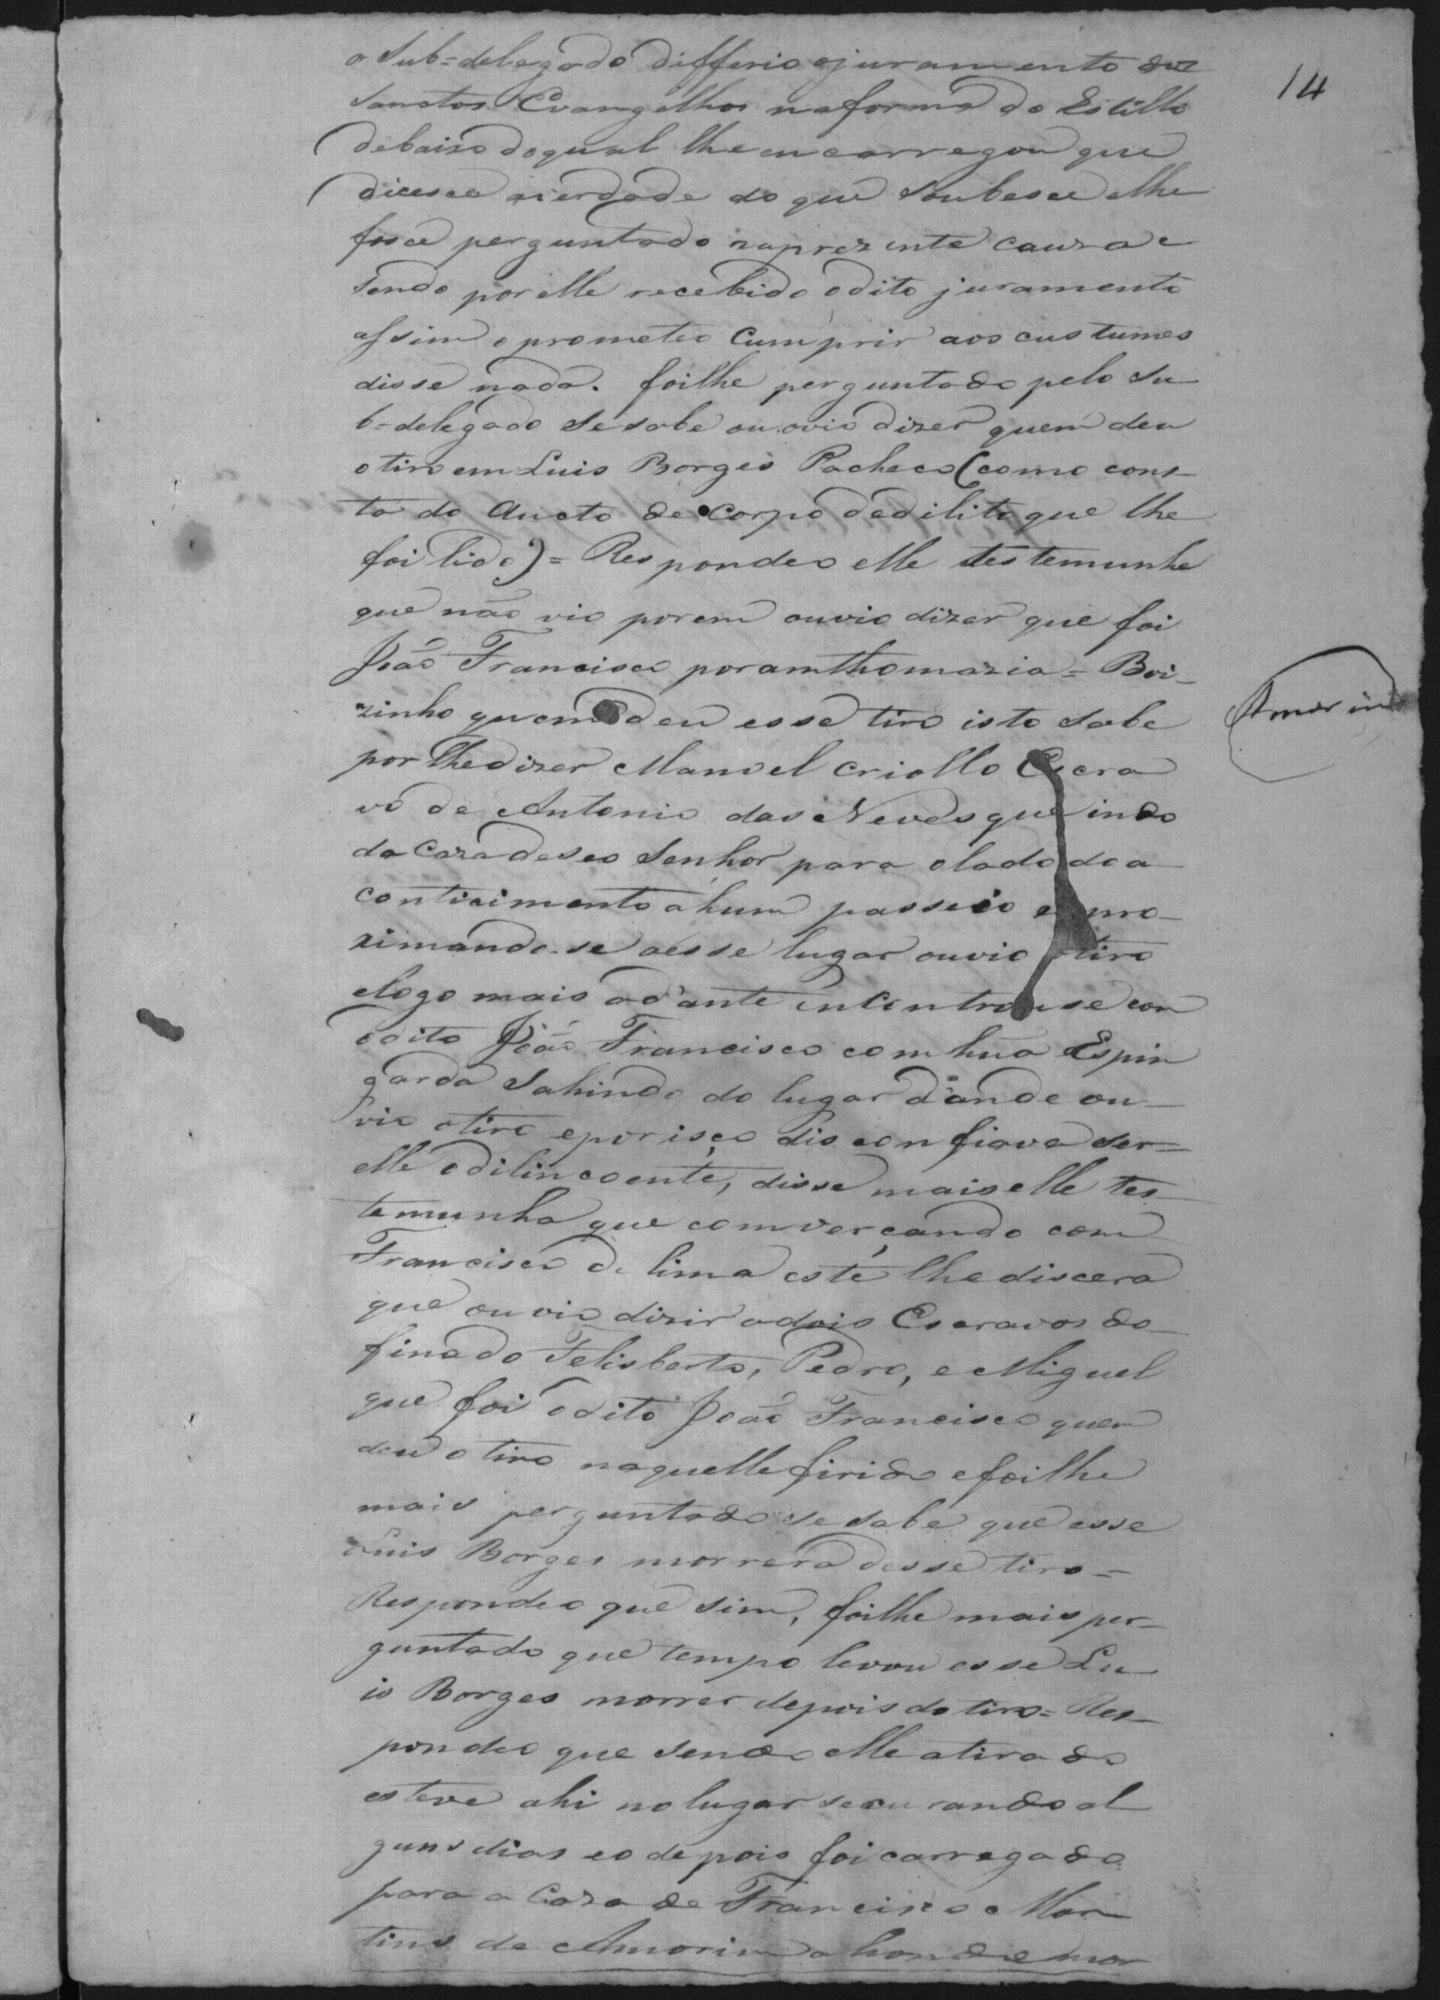 14
o Sub=delegado differio o juramento dos
Sanctos Evangelhos na forma do Estillo
debaixo do qual lhe encarregou que
dicesce averdade do que Soubesce elhe
fosce perguntado naprezente cauza e
Sendo porelle recebido odito juramento
assim oprometeo Cumprir aos custumes
disse nada. foilhe perguntado pelo Su
b=delegado Sesabe ou ovio dizer quem deu
otiro em Luis Borges Pacheco (como cons-
ta do Aucto de Corpo dedilito que lhe
foi lido) = Respondeo elle testemunha
que não vio porem ouvio dizer que foi
João Francisco por amthomazia = Boi-
zinho quem deu esse tiro isto Sabe
por lhedizer Manoel criollo Escra
vo de Antonio das Neves que indo
da Cazadeseo Senhor para olado do a
conticimento ahum passeio e apro-
ximando-se aesse lugar ouvio otiro
elogo mais ad'ante encontrouse com
odito João Francisco com hua Espin
garda Sahindo do lugar d'onde ou-
vio otiro eporisço disconfiava ser-
elle odilincoente, disse maiselle tes-
temunha que comverçando com
Francisco de lima este lhediscera
que ouvio dizir adois Escravos do
finado Felisberto, Pedro, e Miguel
que foi odito João Francisco quem
deu otiro naquelle firido efoilhe
mais perguntado se sabe que esse
Luis Borges morrera desse tiro =
Respondeo que sim, foilhe maisper-
guntado que tempo levou esse Lu
is Borges morrer depois do tiro = Res-
pondeo que sendo elle atirado
esteve ahi nolugar securando al
guns dias eo depois foi carregado
para a Caza de Francisco Mar
tins de Amorim ahonde mor
Amorim